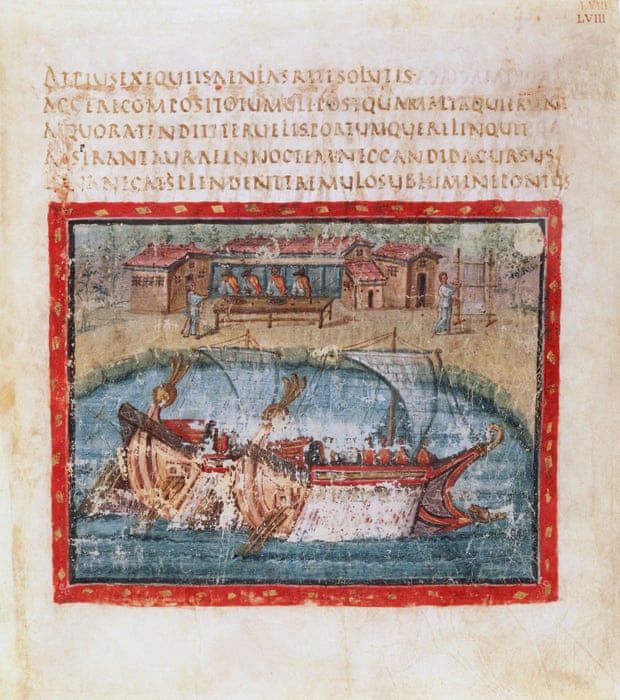 LVIII
LVIII
ATPIUSEXEQUIISAENEASRITESOLUTIS·
AGGERECOMPOSITOTUMULIPOSTQUAMALTAQUIERUNT
AEQUORATENDITITERUELISPORTUMQUERELINQUIT
ADSPIRANTAURAEINNOCTEMNECCANDIDACURSUS
LUNANEGATSPLENDETTREMULOSUBLUMINEPONTUS